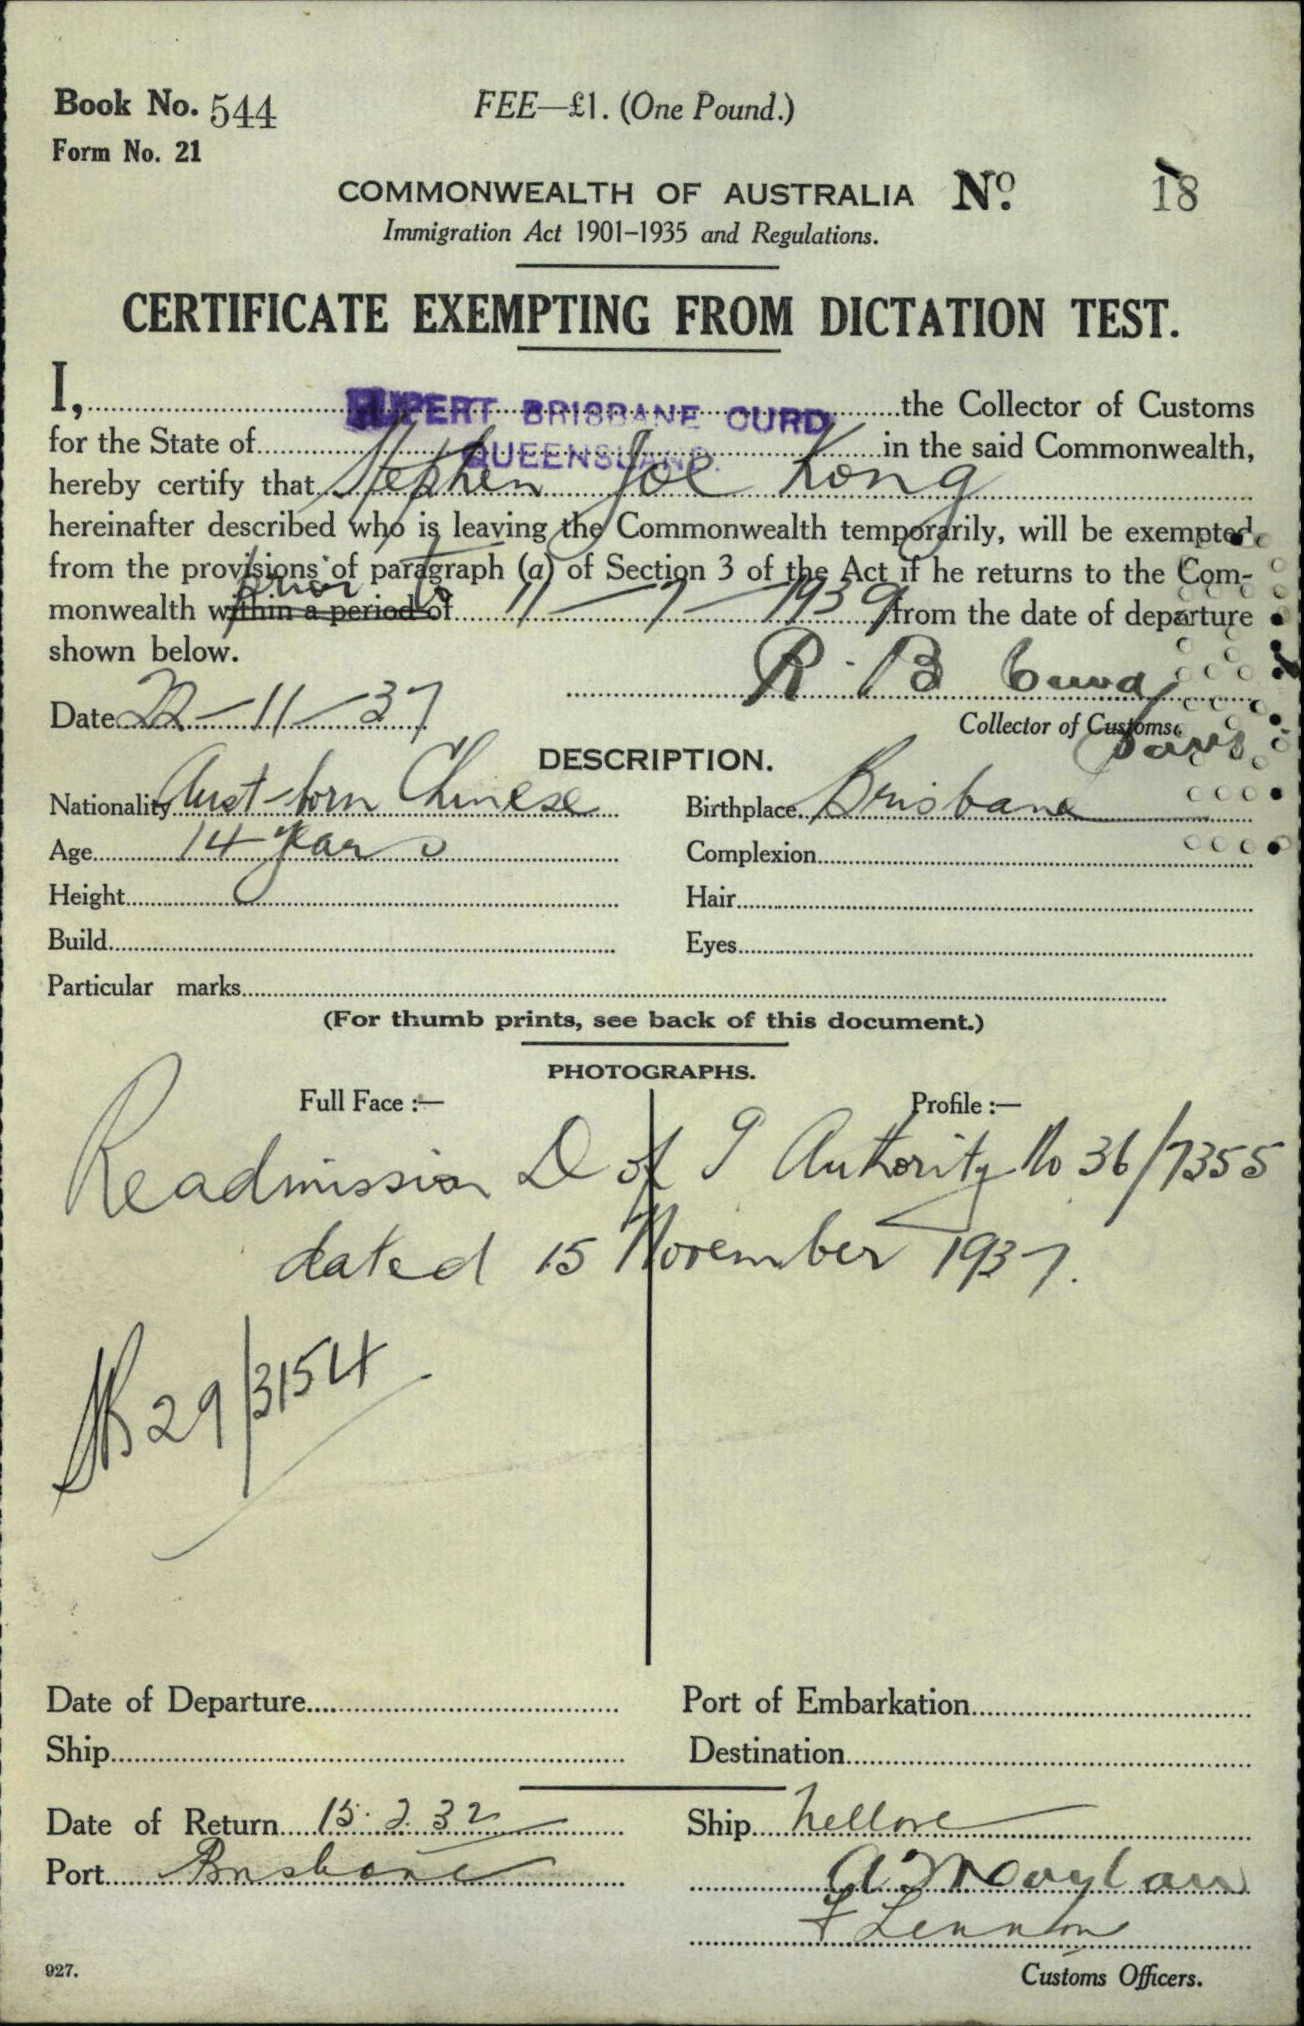 Book No. 544
FEE—£1. (One Pound.)
Form No. 21
COMMONWEALTH OF AUSTRALIA No. 18
Immigration Act 1901-1935 and Regulations.
CERTIFICATE EXEMPTING FROM DICTATION TEST.
I, RUPERT BRISBANE CURD the Collector of Customs
for the State of QUEENSLAND. in the said Commonwealth,
hereby certify that Stephen Joe Kong
hereinafter described who is leaving the Commonwealth temporarily, will be exempted
from the provisions of paragraph (a) of Section 3 of the Act if he returns to the Com-
prior to
monwealth within a period of 11—7—1939 from the date of departure
shown below.
R. B Curd
Date 22-11-37
Collector of Customs.
DESCRIPTION.
Nationality Aust-born Chinese Birthplace Brisbane
Age 14 years Complexion
Height Hair
Build Eyes
Particular marks
(For thumb prints, see back of this document.)
PHOTOGRAPHS.
Full Face :— Profile :—
Readmission D of I Authority No 36/7355
dated 15 November 1937.
29/3154
Date of Departure Port of Embarkation
Ship Destination
Date of Return 15.2.32 Ship Nellore
Port Brisbane A. Moylan
F Lennon
927.
Customs Officers.